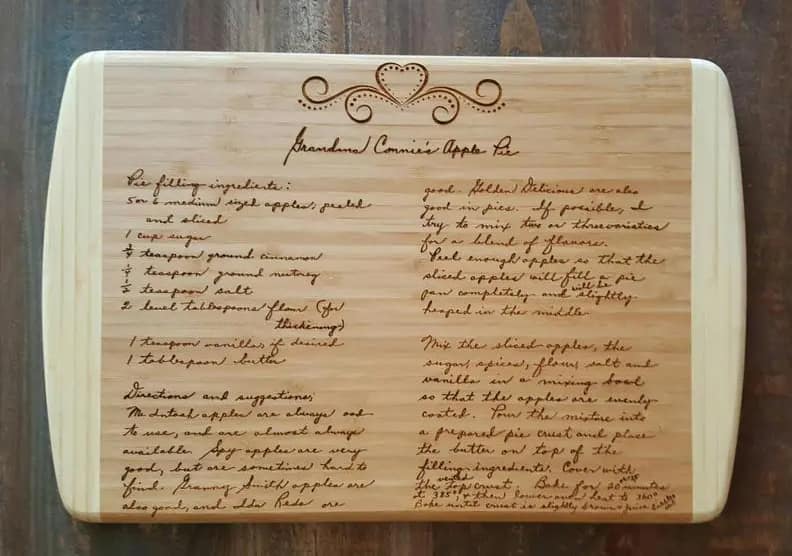 Grandma Connie's Apple Pie
Pie filling ingredients:
5 or 6 medium sized apples, peeled
and sliced
1 cup sugar
3/4 teaspoon ground cinnamon
1/4 teaspoon ground nutmeg
1/2 teaspoon salt
2 level tablespoons flour (for
thickening)
1 teaspoon vanilla, if desired
1 tablespoon butter
Directions and suggestions;
McIntosh apples are always good
to use, and are almost always
available. Spy apples are very
good, but are sometimes hard to
find. Granny Smith apples are
also good, and Ida Reds are
good. Golden Delicious are also
good in pies. If possible, I
try to mix two or three varieties
for a blend of flavors.
Peel enough apples so that the
sliced apples will fill a pie
pan completely and will be slightly
heaped in the middle
Mix the sliced apples, the
sugar, spices, flour, salt and
vanilla in a mixing bowl
so that the apples are evenly
coated. Pour the mixture into
a prepared pie crust and place
the butter on top of the
filling ingredients. Cover with
the vented top crust. Bake for 20 minutes
at 385° & then lower oven heat to 360°
Bake until crust is slightly brown & juice